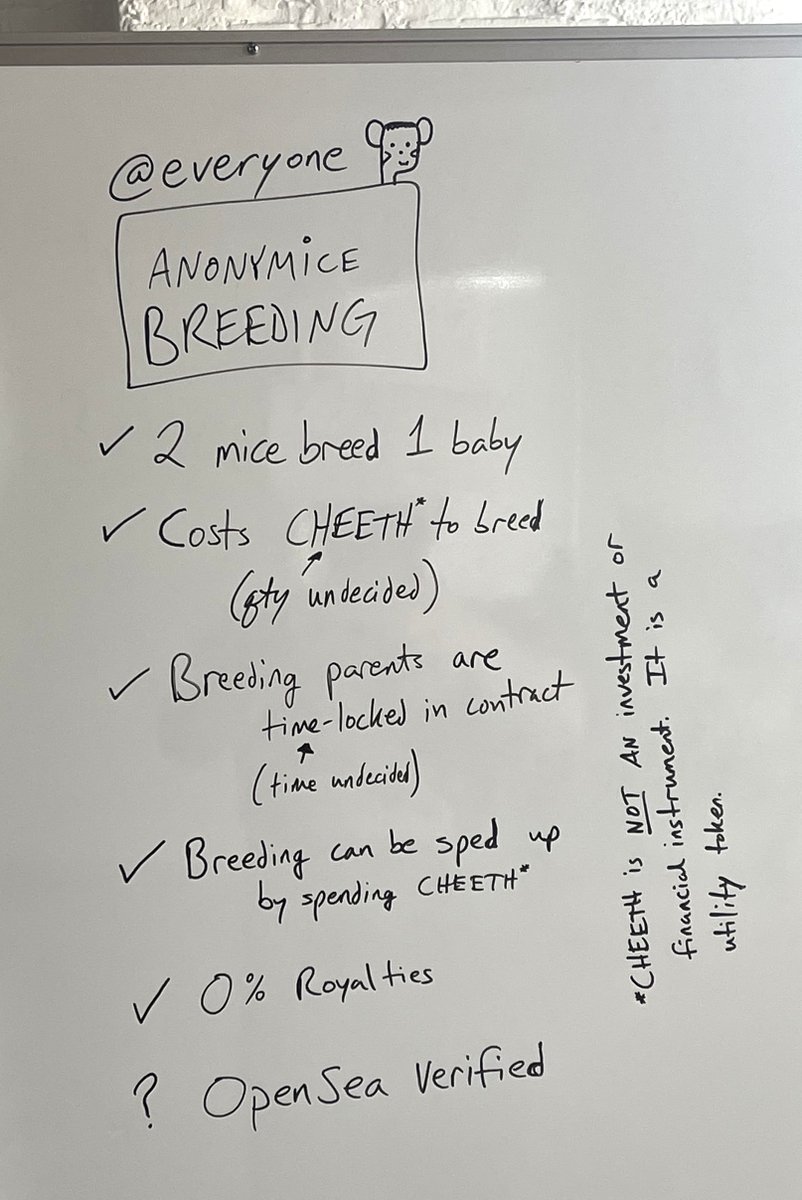 @everyone
ANONYMICE
BREEDING
✓ 2 mice breed 1 baby
✓ Costs CHEETH* to breed
(qty undecided)
✓ Breeding parents are
time-locked in contract
(time undecided)
✓ Breeding can be sped up
by spending CHEETH*
✓ 0% Royalties
? OpenSea Verified
*CHEETH is NOT AN investment or
financial instrument. It is a
utility token.